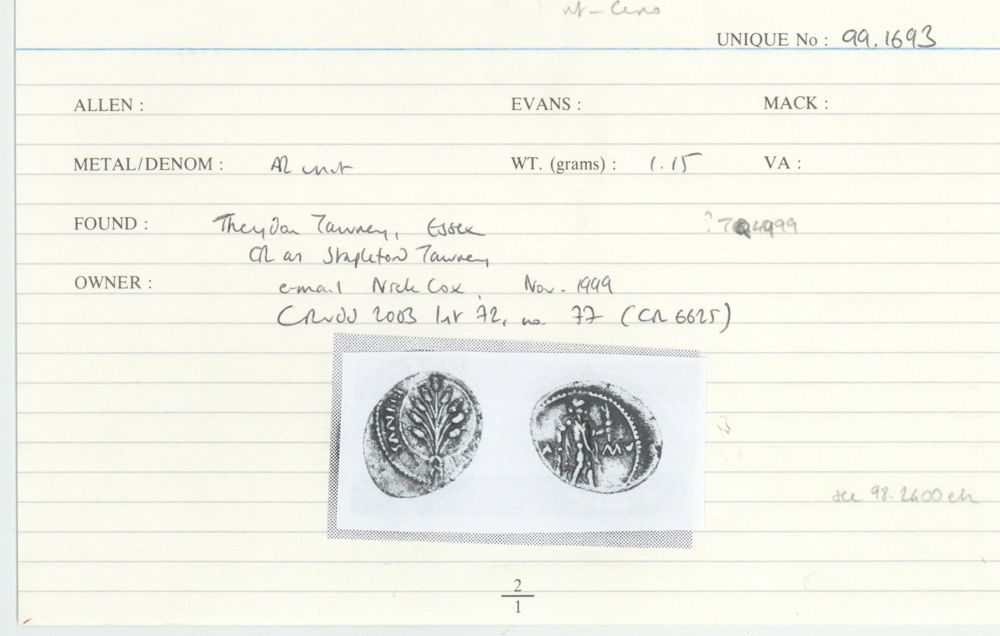 UNIQUE No : 99.1693
ALLEN : EVANS : MACK :
METAL/DENOM : AR unit WT. (grams) : 1.15 VA :
FOUND : Theydon Tawney, Essex
CR as Stapleton Tawney
OWNER : e-mail Nick Cox, Nov. 1999
2003 list 72, no. 77 (CR 6625)
see 98.2600 etc
2
1